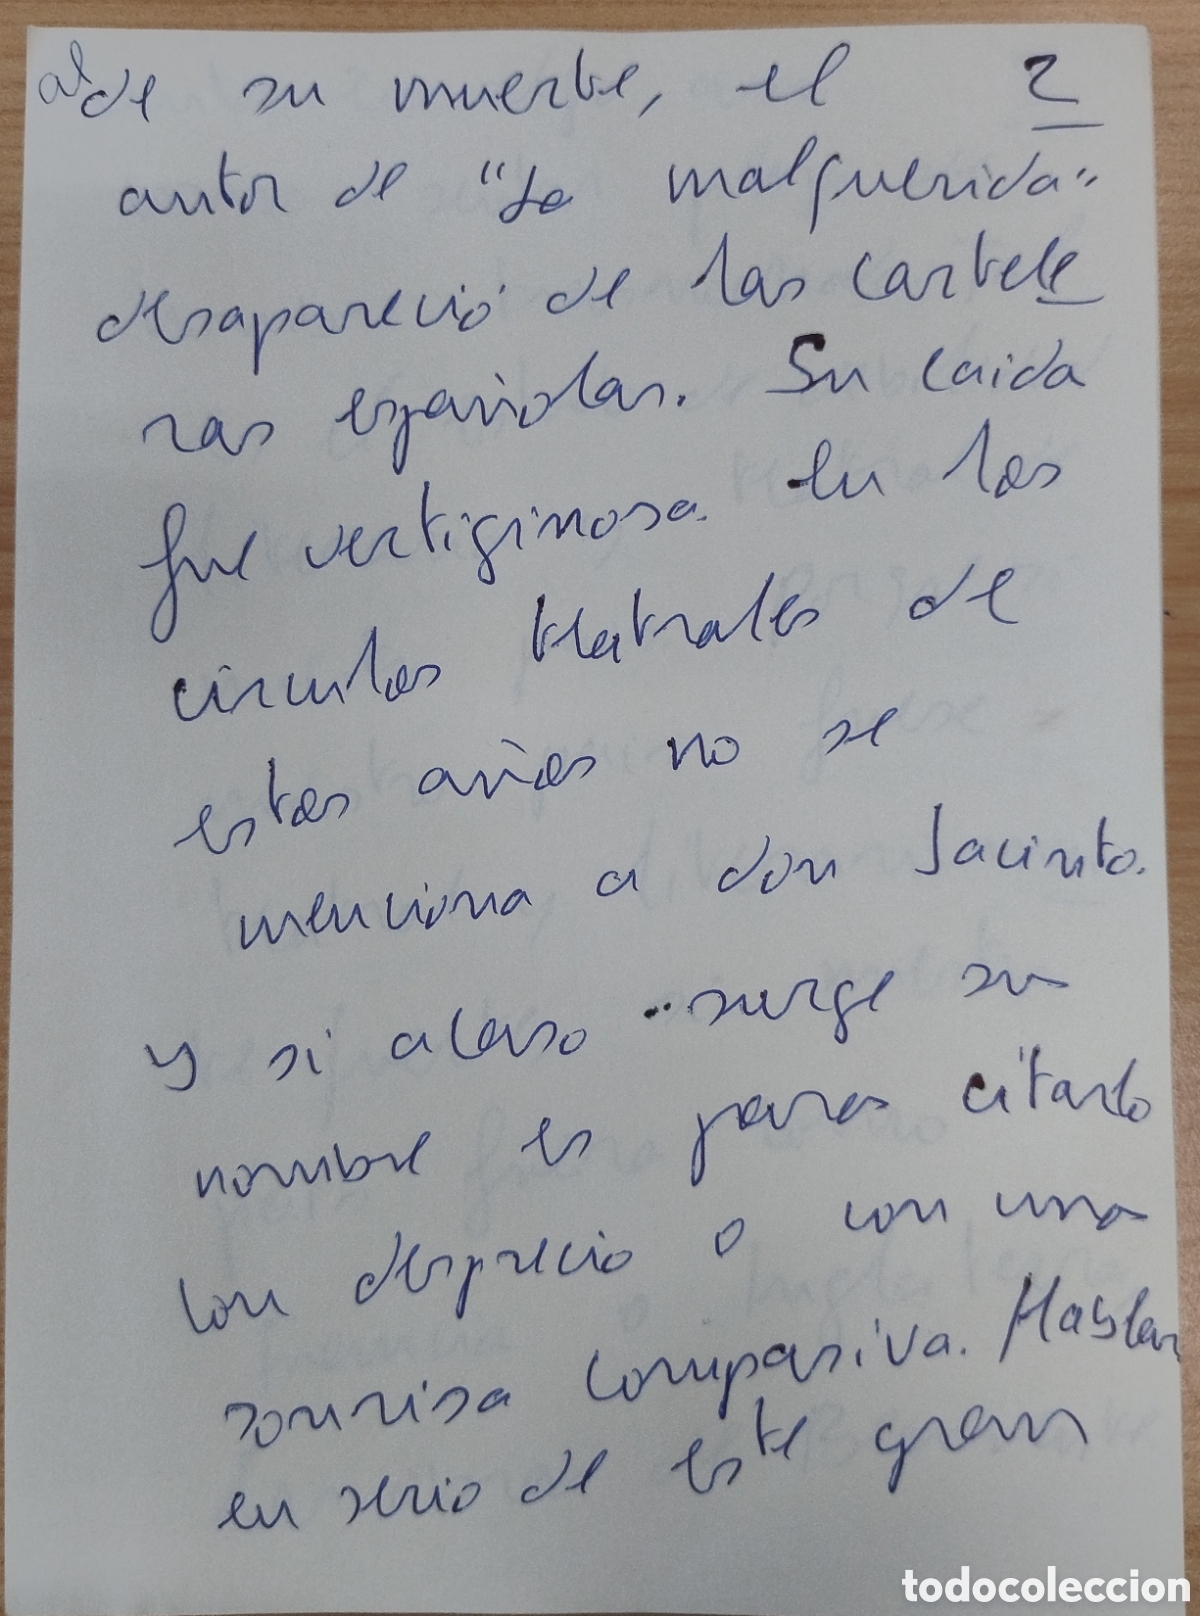 al de su muerte, el 2
autor de "La malquerida"
desapareció de las cartele
ras españolas. Su caida
fue vertiginosa. En los
circulos teatrales de
estos años no se
menciona a don Jacinto.
y si acaso surge su
nombre es para citarlo
con desprecio o con una
sonrisa compasiva. Hablar
en serio de este gran
todocoleccion